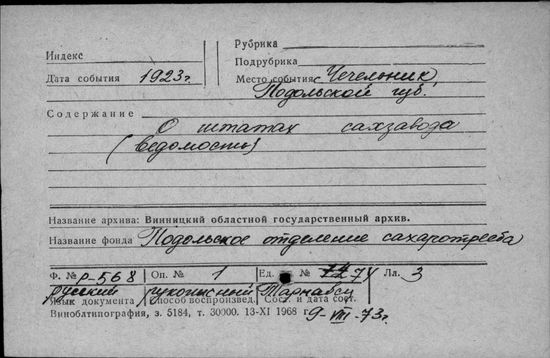 Рубрика
Индекс
Подрубрика
Дата события 1923г. Место события Чечельник
Подольской губ.
Содержание
О штатах сахзавода
(ведомости)
Название архива: Винницкий областной государственный архив.
Название фонда Подольское отделение сахаротреста
Ф. № р-568 Оп. № 1 Ед. № 74 Лл. 3
русский рукописный
Язык документа Способ воспроизвед. Сост. и дата сост.
Виноблтипография, з. 5184, т. 30000. 13-XI 1968 г. 9-VIII-73г.